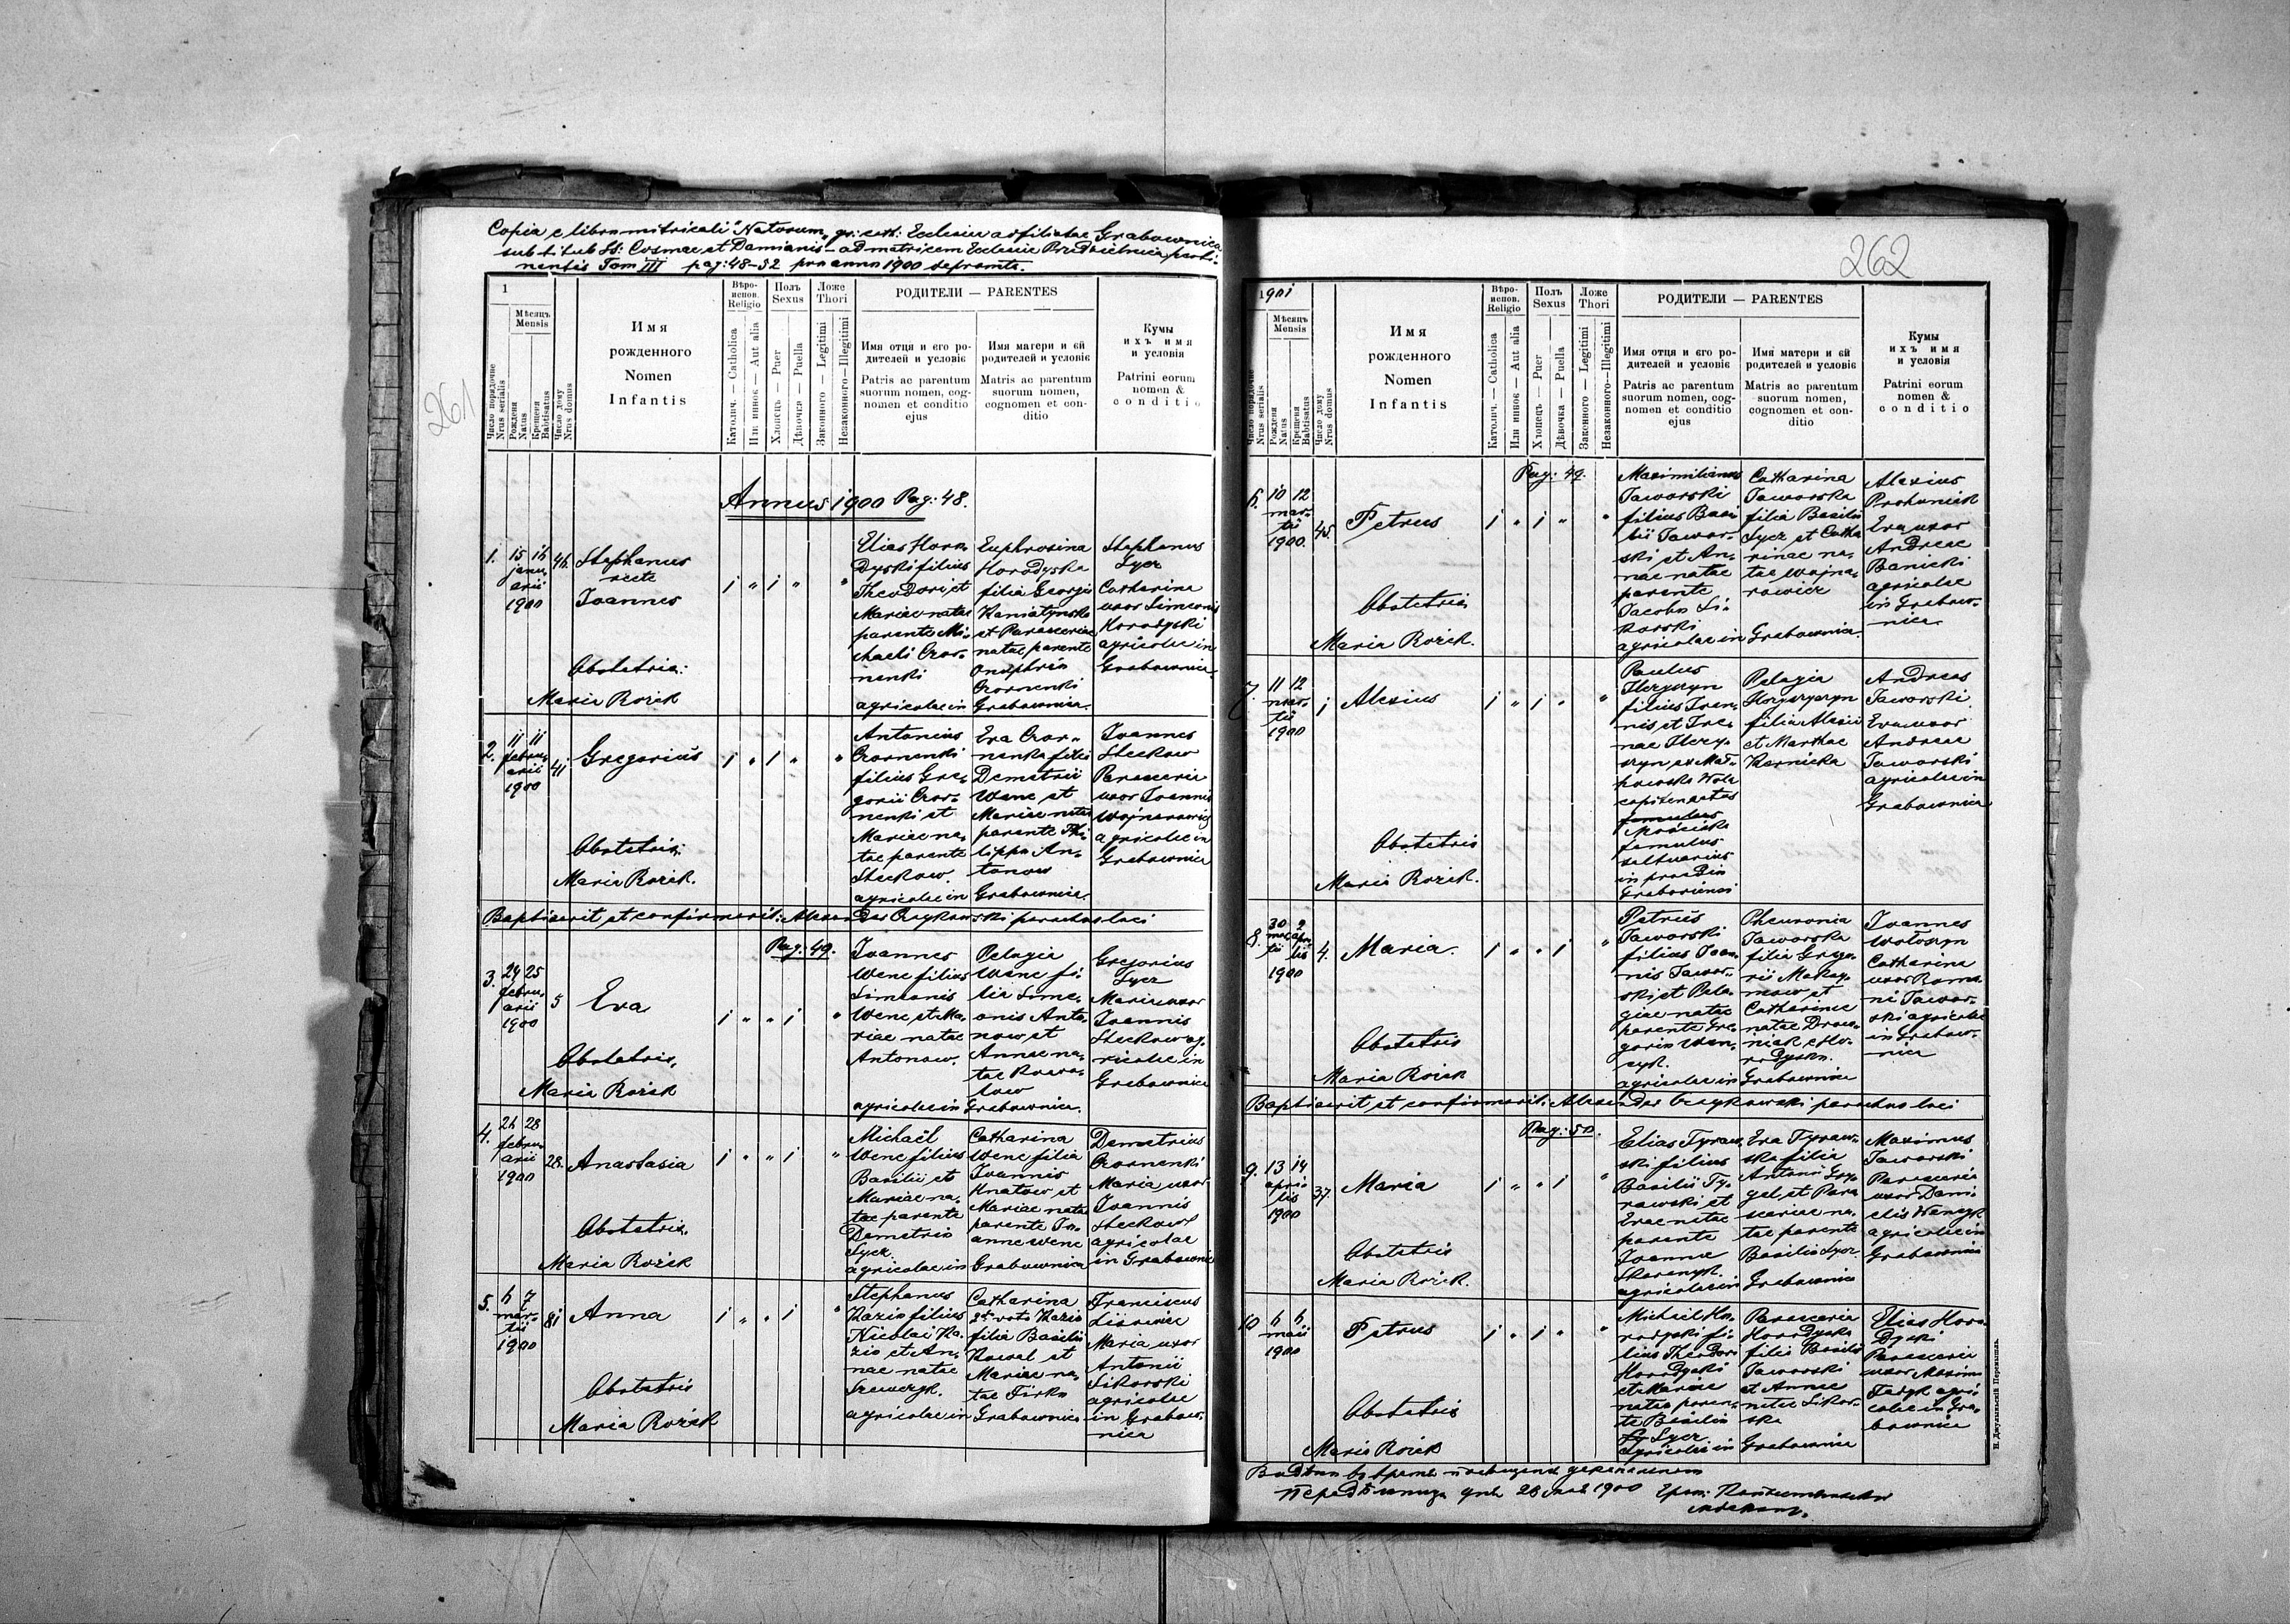 Copia e libro metricali "Natorum" gr: cat: Ecclesiae adfiliatae Grabownica
sub titulo SS: Cosmae et Damiani - ad matricem Ecclesiae Przedzielnica perti-
nentis Tom III pag: 48-52 pro anno 1900 deprompta.
261
1
Мѣсяцъ
Mensis
Число порядочне
Nrus serialis
Рожденя
Natus
Крещеня
Babtisatus
Число дому
Nrus domus
Имя
рожденного
Nomen
Infantis
Вѣро-
испов.
Religio
Католич. — Catholica
Или нинос — Aut alia
Полъ
Sexus
Хлопецъ — Puer
Дѣвочка — Puella
Ложе
Thori
Законного — Legitimi
Незаконного — Illegitimi
РОДИТЕЛИ — PARENTES
Имя отця и єго ро-
дителей и условіє
Patris ac parentum
suorum nomen, cog-
nomen et conditio
ejus
Имя матери и єй
родителей и условіє
Matris ac parentum
suorum nomen,
cognomen et con-
ditio
Кумы
ихъ имя
и условія
Patrini eorum
nomen &
conditio
Annus 1900 Pag: 48.
1.
15 16
janu-
arii
1900
46.
Stephanus
recte
Joannes
Obstetrix:
Maria Rozick
1 " 1 " "
Elias Horo-
dyski filius
Theodori et
Mariae natae
parente Mi-
chaeli Czor-
nenki
agricolae in
Euphrosina
Horodyska
filia Georgii
Kaniatynski
et Parasceviae
natae parente
Onuphrio
Czornenki
Grabownica.
Stephanus
Lycz
Catharina
uxor Simeonis
Horodyski
agricolae in
Grabownica
2.
11 11
febru-
arii
1900
41
Gregorius
Obstetrix:
Maria Rozick.
1 " 1 " "
Antonius
Czornenki
filius Gre-
gorii Czor-
nenki et
Mariae na-
tae parente
Steckow.
agricolae in
Eva Czor-
nenka filia
Demetrii
Wenc et
Mariae natae
parente Phi-
lippo An-
tonow
Grabownica.
Joannes
Steckow
Parascevia
uxor Joannis
Wojnarowicz
agricolae in
Grabownica
Baptisavit et confirmavit: Alexander Czaykowski parochus loci
Pag: 49.
3.
24 25
febru-
arii
1900
5
Eva
Obstetrix,
Maria Rozick
1 " " 1 "
Joannes
Wenc filius
Simeonis
Wenc et Ma-
riae natae
Antonow.
agricolae in
Pelagia
Wenc fi-
lia Sime-
onis Anto-
now et
Annae na-
tae
Grabownica.
Gregorius
Lycz
Maria uxor
Joannis
Steckow ag-
ricolae in
Grabownica
4.
26 28
febru-
arii
1900
28.
Anastasia
Obstetrix.
Maria Rozick
1 " " 1 "
Michaël
Wenc filius
Basilii et
Mariae na-
tae parente
Demetrio
Lycz
agricolae in
Catharina
Wenc filia
Joannis
Knatow et
Mariae natae
parente Jo-
anne Wenc
Grabownica
Demetrius
Czornenki
Maria uxor
Joannis
Steckow
agricolae
in Grabownica
5.
6 7
mar-
tii
1900
81
Anna
Obstetrix
Maria Rozick
1 " " 1 "
Stephanus
Kazio filius
Nicolai Ka-
zio et An-
nae natae
Szewczyk.
agricolae in
Catharina
2do voto Kazio
filia Basilii
Kowal et
Mariae na-
tae Firko
Grabownica
Franciscus
Maria uxor
Antonii
Sikorski
agricolae
in Grabow-
nica
262
1901
Мѣсяцъ
Mensis
Число порядочне
Nrus serialis
Рожденя
Natus
Крещеня
Babtisatus
Число дому
Nrus domus
Имя
рожденного
Nomen
Infantis
Вѣро-
испов.
Religio
Католич. — Catholica
Или нинос — Aut alia
Полъ
Sexus
Хлопецъ — Puer
Дѣвочка — Puella
Ложе
Thori
Законного — Legitimi
Незаконного — Illegitimi
РОДИТЕЛИ — PARENTES
Имя отця и єго ро-
дителей и условіє
Patris ac parentum
suorum nomen, cog-
nomen et conditio
ejus
Имя матери и єй
родителей и условіє
Matris ac parentum
suorum nomen,
cognomen et con-
ditio
Кумы
ихъ имя
и условія
Patrini eorum
nomen &
conditio
Pag: 49.
6.
10 12
mar-
tii
1900.
45.
Petrus
Obstetrix
Maria Rozick.
1 " 1 " "
Maximilianus
Jaworski
filius Basi
lii Jawor-
ski et An-
nae natae
parente
Jacobo Si-
korski
agricolae in
Catharina
Jaworska
filia Basilii
Lycz et Catha
rinae na-
tae Wojna-
rowicz
Grabownica.
Alexius
Prohonick
Eva uxor
Andreae
Banicki
agricolae
in Grabow-
nica
7.
11 12
mar-
tii
1900
1
Alexius
Obstetrix
Maria Rozick.
1 " 1 " "
Paulus
filius Joan-
nis et Ire-
nae
Wola
famulus
saltuarius
in praedio
Pelagia
filia Alexii
et Marthae
Kernicka
Andreas
Jaworski.
Eva uxor
Andreae
Jaworski
agricolae in
Grabownica
8.
30 2
mar- apri-
tii lis
1900
4.
Maria.
Obstetrix
Maria Rozick
1 " " 1 "
Petrus
Jaworski
filius Joan-
nis Jawor-
ski et Pela-
giae natae
parente Gre-
gorio Wan-
czyk.
agricolae in
Pheuronia
Jaworska
filia Grego-
rii
et
Catharinae
natae
Grabownica
Joannes
Wołoszyn
Catharina
uxor Roma-
ni Jawor-
ski agricolae
in Grabow-
nica
Baptisavit et confirmavit: Alexander Czaykowski parochus loci
Pag: 50.
9.
13 14
apri-
lis
1900
37.
Maria
Obstetrix
Maria Rozick.
1 " " 1 "
Elias Tyraw-
ski filius
Basilii Ty-
rawski et
Evae natae
parente
Joanne
agricolae in
Eva Tyraw-
ska filia
Antonii
et Para
sceviae na-
tae parente
Basilio Lycz.
Grabownica
Maximus
Jaworski
Parascevia
uxor Dani-
elis Wanczyk
agricolae in
Grabownica
10
6 6
maii
1900
Petrus
Obstetrix
Maria Rozick
1 " 1 " "
Michaël Ho-
rodyski fi-
lius Theodori
Horodyski
et Mariae
natae paren-
te Basilio
Lycz
agricolae in
Parascevia
Horodyska
filia Basilii
Jaworski
et Annae
natae Sikor-
ska
Grabownica
Elias Horo-
dyski
Parascevia
uxor Maximi
Fadyk agri
colae in Gra-
bownica
дня 28 мая 1900
Н. Джулыньскій Перемышль.